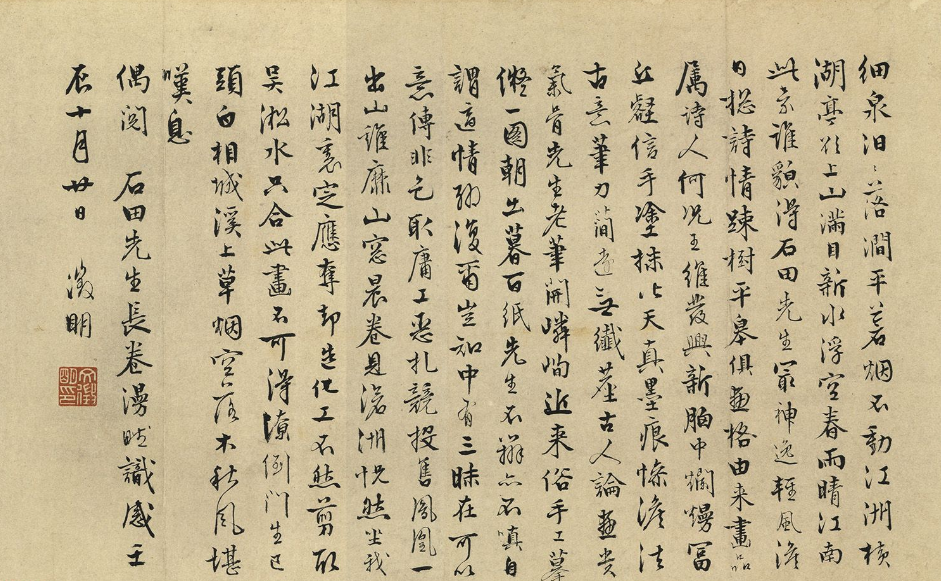 細泉汩〻落澗平蒼烟不動江洲橫
湖亭欲上山滿目新水浮空春雨晴江南
此景誰貌得石田先生最神逸輕風澹
日揔詩情踈樹平皋俱畫格由来畫品
属詩人何况王維發興新胸中爛熳富
丘壑信手塗抹皆天真墨痕慘澹法
古意筆力蕳遠無纖塵古人論畫貴
氣骨先生老筆開嶙峋近来俗手工摹
儗一圖朝出暮百紙先生不辯亦不嗔自
謂適情聊復爾豈知中有三昧在可以
意傳非色取庸工惡札競投售鳳凰一
出山雞靡山窗晨卷見滄洲恍然坐我
江湖裏定應奪却造化工不然剪取
吳淞水只合此畫不可得潦倒門生已
頭白相城溪上草烟空落木秋風堪
嘆息
偶閱 石田先生長卷漫此識感壬
辰十月廿日 徵明
文徵明印